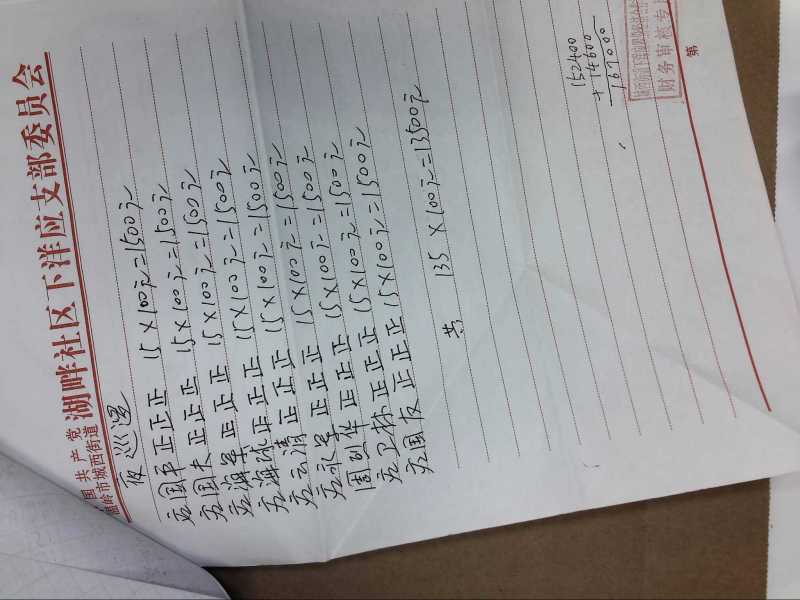 国共产党
温岭市城西街道
湖畔社区下洋应支部委员会
夜巡逻
应国平 正正正 15×100元=1500元
应国夫 正正正 15×100元=1500元
应海军 正正正 15×100元=1500元
应海球 正正正 15×100元=1500元
应云清 正正正 15×100元=1500元
应永军 正正正 15×100元=1500元
周 华 正正正 15×100元=1500元
应卫林 正正正 15×100元=1500元
应国友 正正正 15×100元=1500元
共 135×100元=13500元
152400
+14600
167000
财务审核专
第